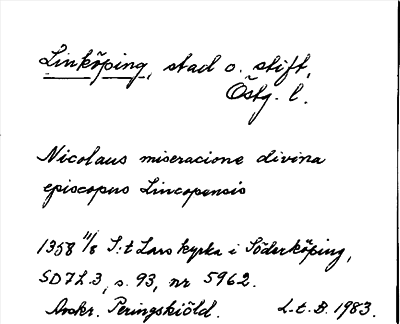 Linköping, stad o. stift,
Östg. l.
Nicolaus miseracione divina
episcopus Lincopensis
1358 11/8 S:t Lars kyrka i Söderköping,
SD 7 L. 3, s. 93, nr 5962.
Avskr. Peringskiöld. L-t. B. 1983.